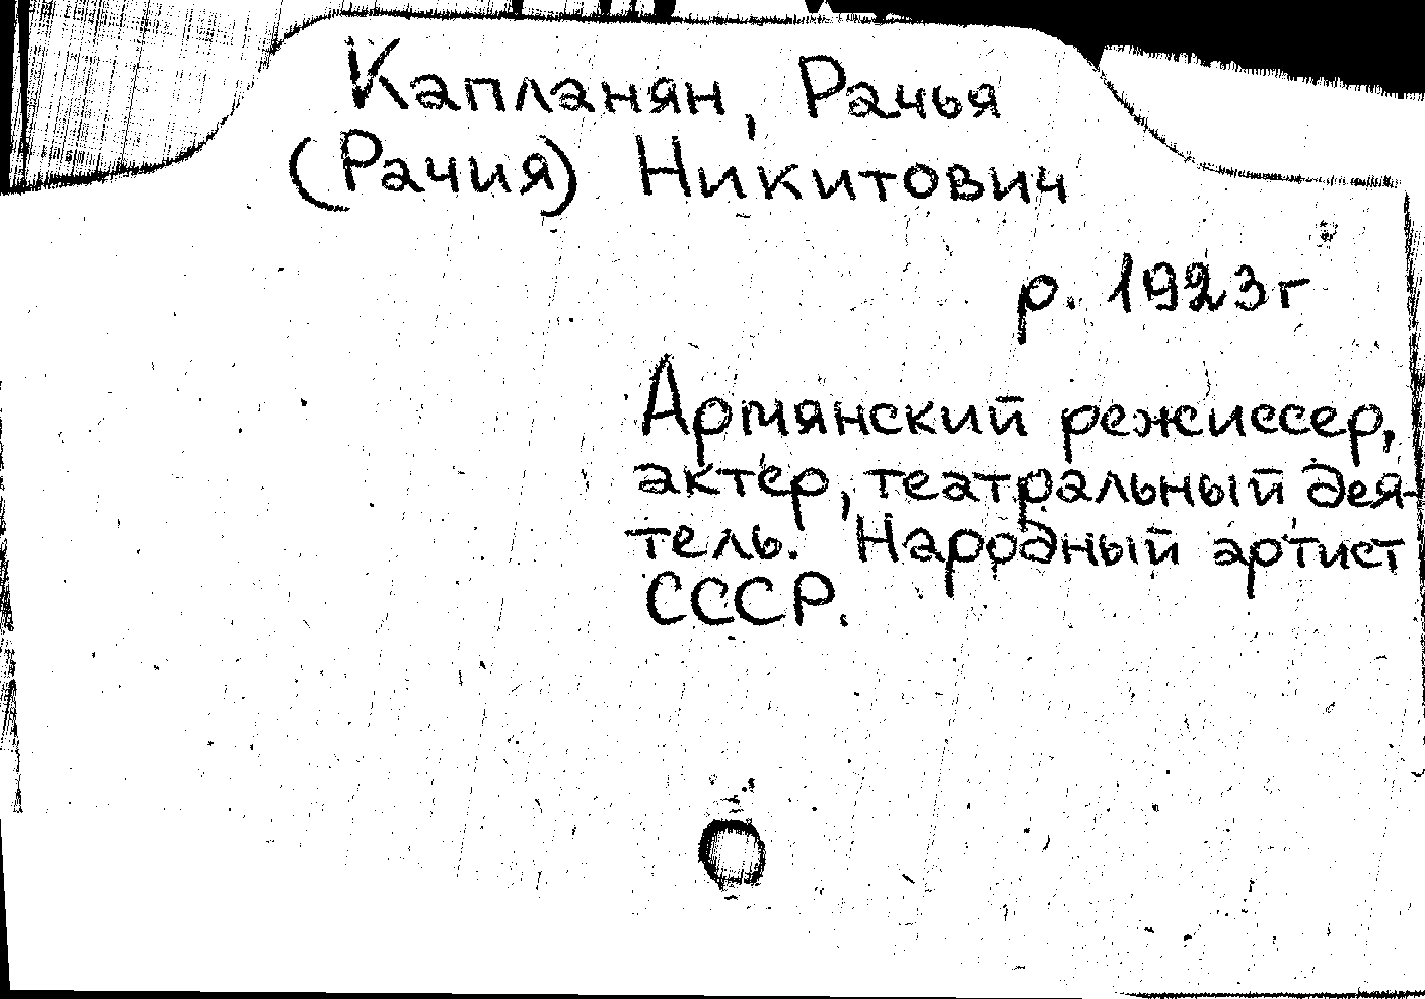 Капланян, Рачья
(Рачия) Никитович
р. 1923г
Армянский режиссер,
актер, театральный дея-
тель. Народный артист
СССР.